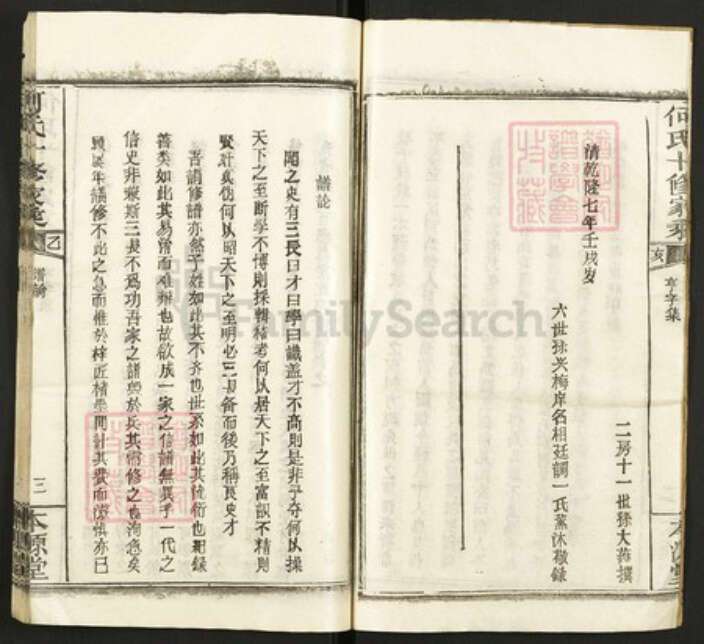 何氏十修家乘
亨字集
二房十一世孫大海撰
六世孫字梅岸名相廷謌一氏薰沐敬錄
清乾隆七年壬戌歲
譜論
聞之史有三長曰才曰學曰識蓋才不高則是非予奪何以操
天下之至斷學不博則採輯稽考何以居天下之至富識不精則
賢奸真偽何以昭天下之至明必三長備而後乃稱良史才
吾謂修譜亦然子姓如此其不齊也世系如此其流衍也紀錄
善類如此其易淆而難辨也故欲成一家之信譜無異于一代之
信史非兼斯三長不為功吾家之譜與於兵其需修之也洵急矣
顧屢年議修不此之急而惟於梓匠楮墨間計其費而
亦已
何氏十修家乘
譜論
三
本源堂
本源堂
FamilySearch